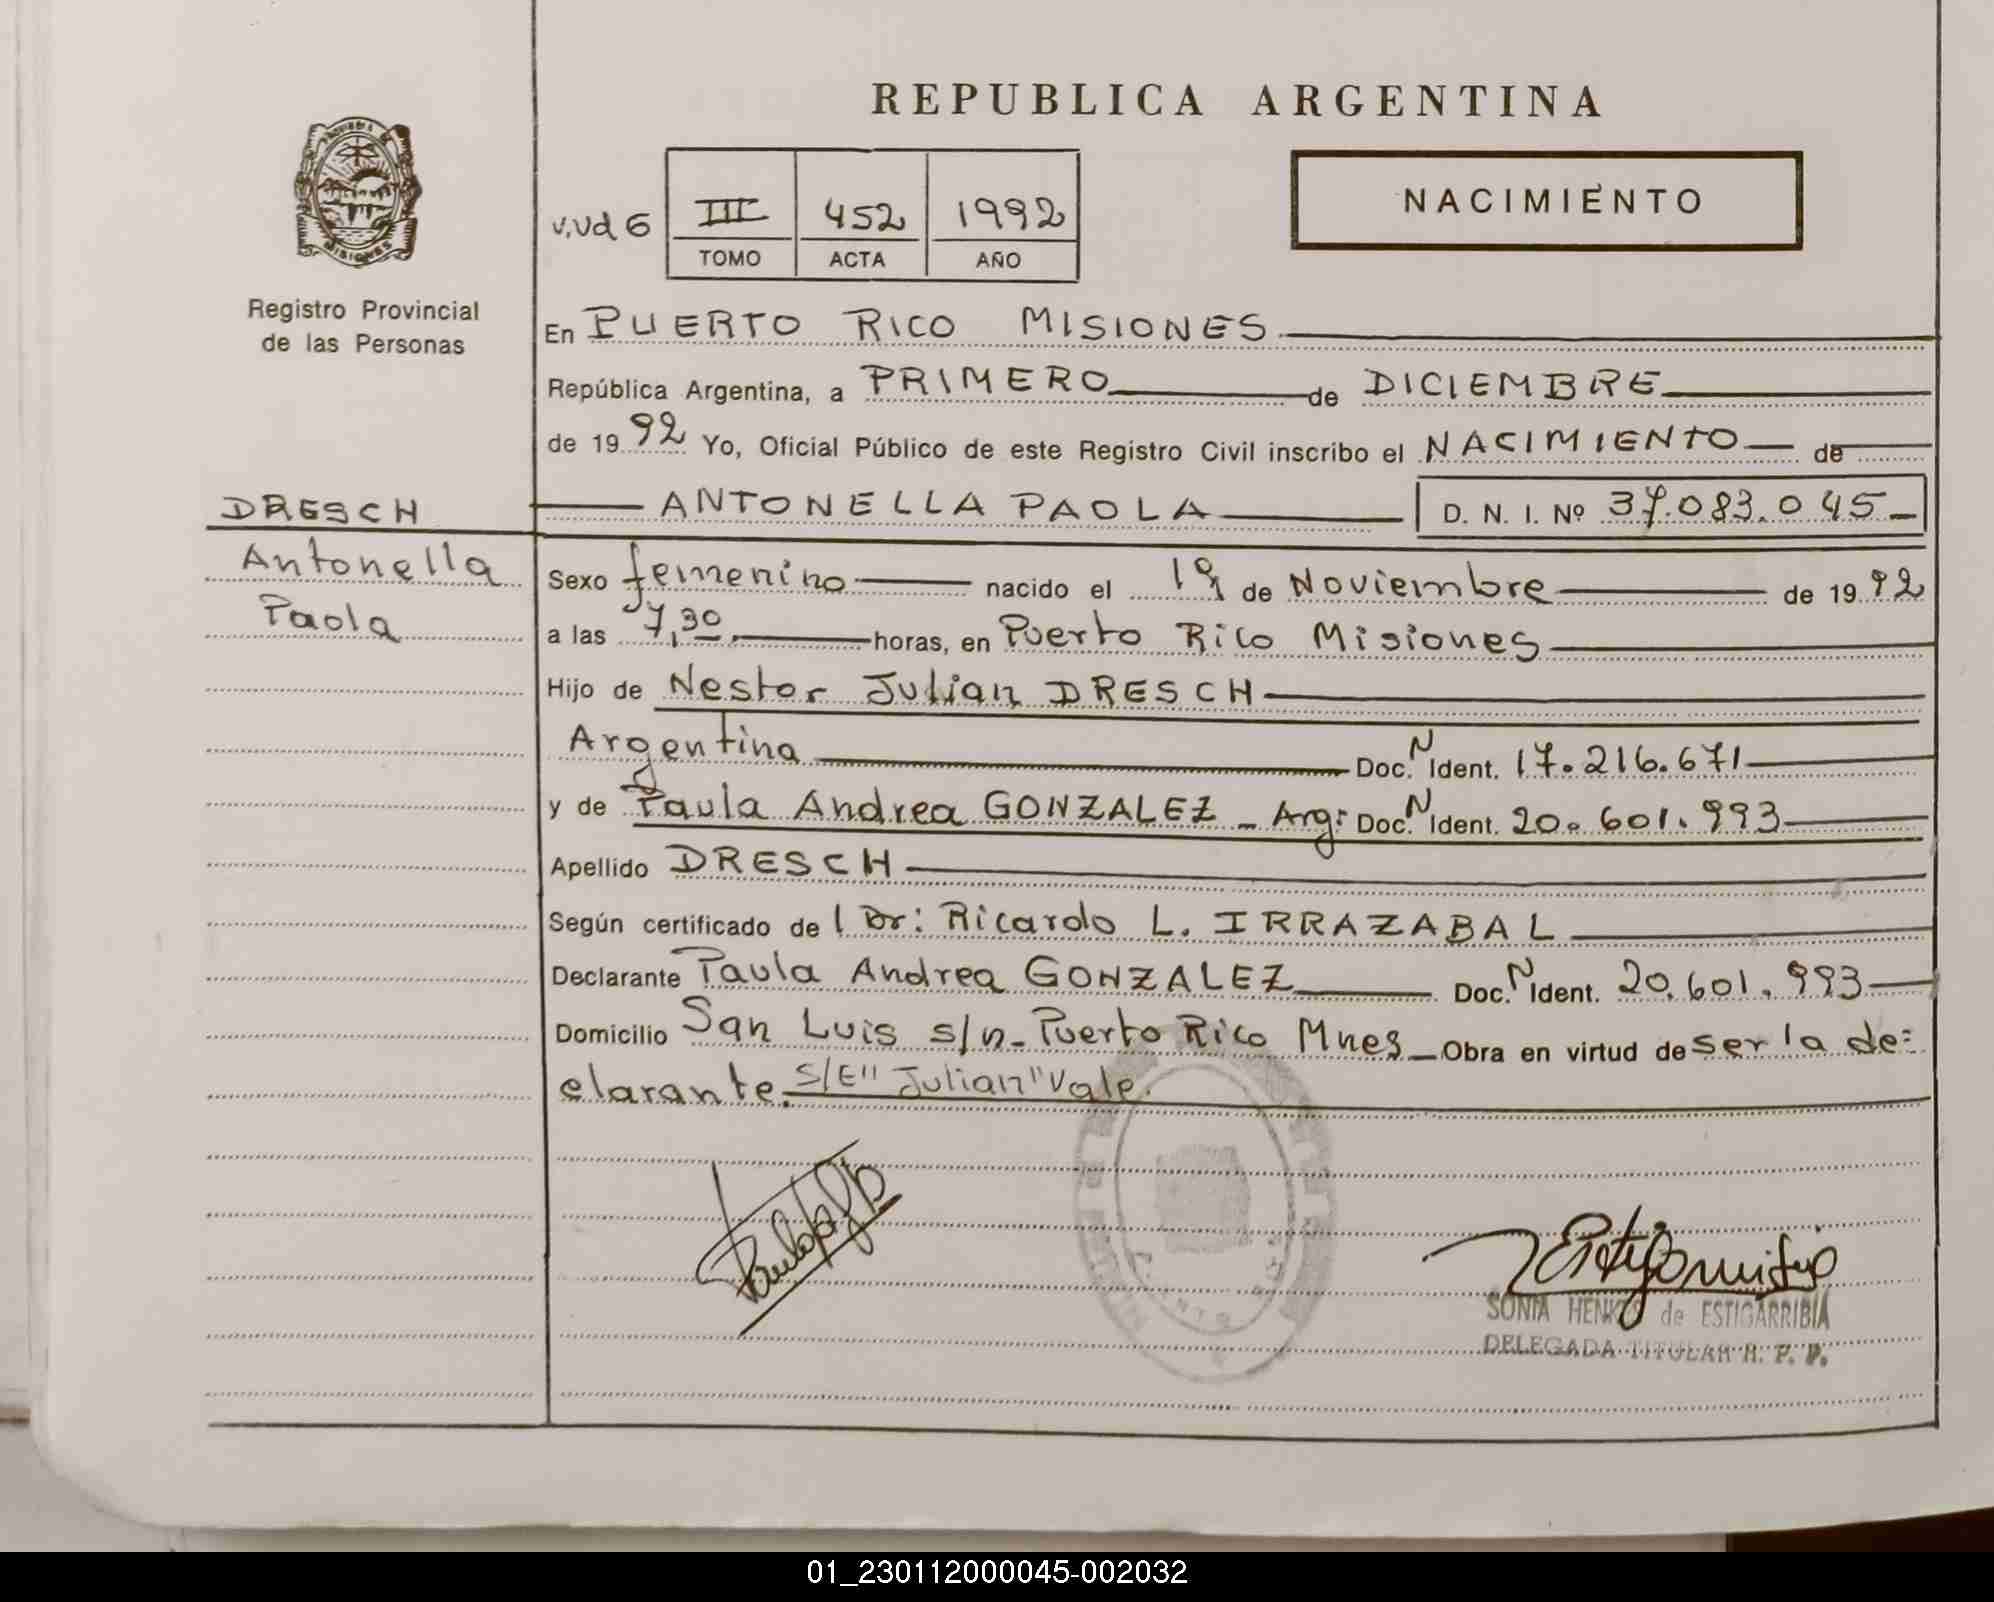 REPUBLICA ARGENTINA
NACIMIENTO
III 452 1992
TOMO ACTA AÑO
Registro Provincial
de las Personas
En PUERTO RICO MISIONES
República Argentina, a PRIMERO de DICIEMBRE
de 1992 Yo, Oficial Público de este Registro Civil inscribo el NACIMIENTO de
DRESCH
ANTONELLA PAOLA D. N. I. Nº 37.083.045
Antonella
Paola
Sexo femenino nacido el 19 de Noviembre de 1992
a las 7,30 horas, en Puerto Rico Misiones
Hijo de Nestor Julian DRESCH
Argentina Doc. N Ident. 17.216.671
y de Paula Andrea GONZALEZ - Arg: Doc. N Ident. 20.601.993
Apellido DRESCH
Según certificado de l Dr: Ricardo L. IRRAZABAL
Declarante Paula Andrea GONZALEZ Doc. N Ident. 20.601.993
Domicilio San Luis s/n - Puerto Rico Mnes - Obra en virtud de ser la de:
clarante. S/E" Julian" Vale.
SONIA de ESTIGARRIBIA
DELEGADA TITULAR R. P. P.
01_230112000045-002032